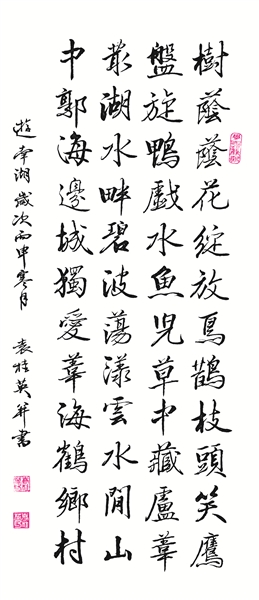 樹蔭蔭花綻放鳥鵲枝頭笑鷹
盤旋鴨戲水魚兒草中藏盧葦
叢湖水畔碧波蕩漾雲水間山
中郭海邊城獨愛葦海鶴鄉村
遊南湖歲次丙申寒月 袁桂英并書